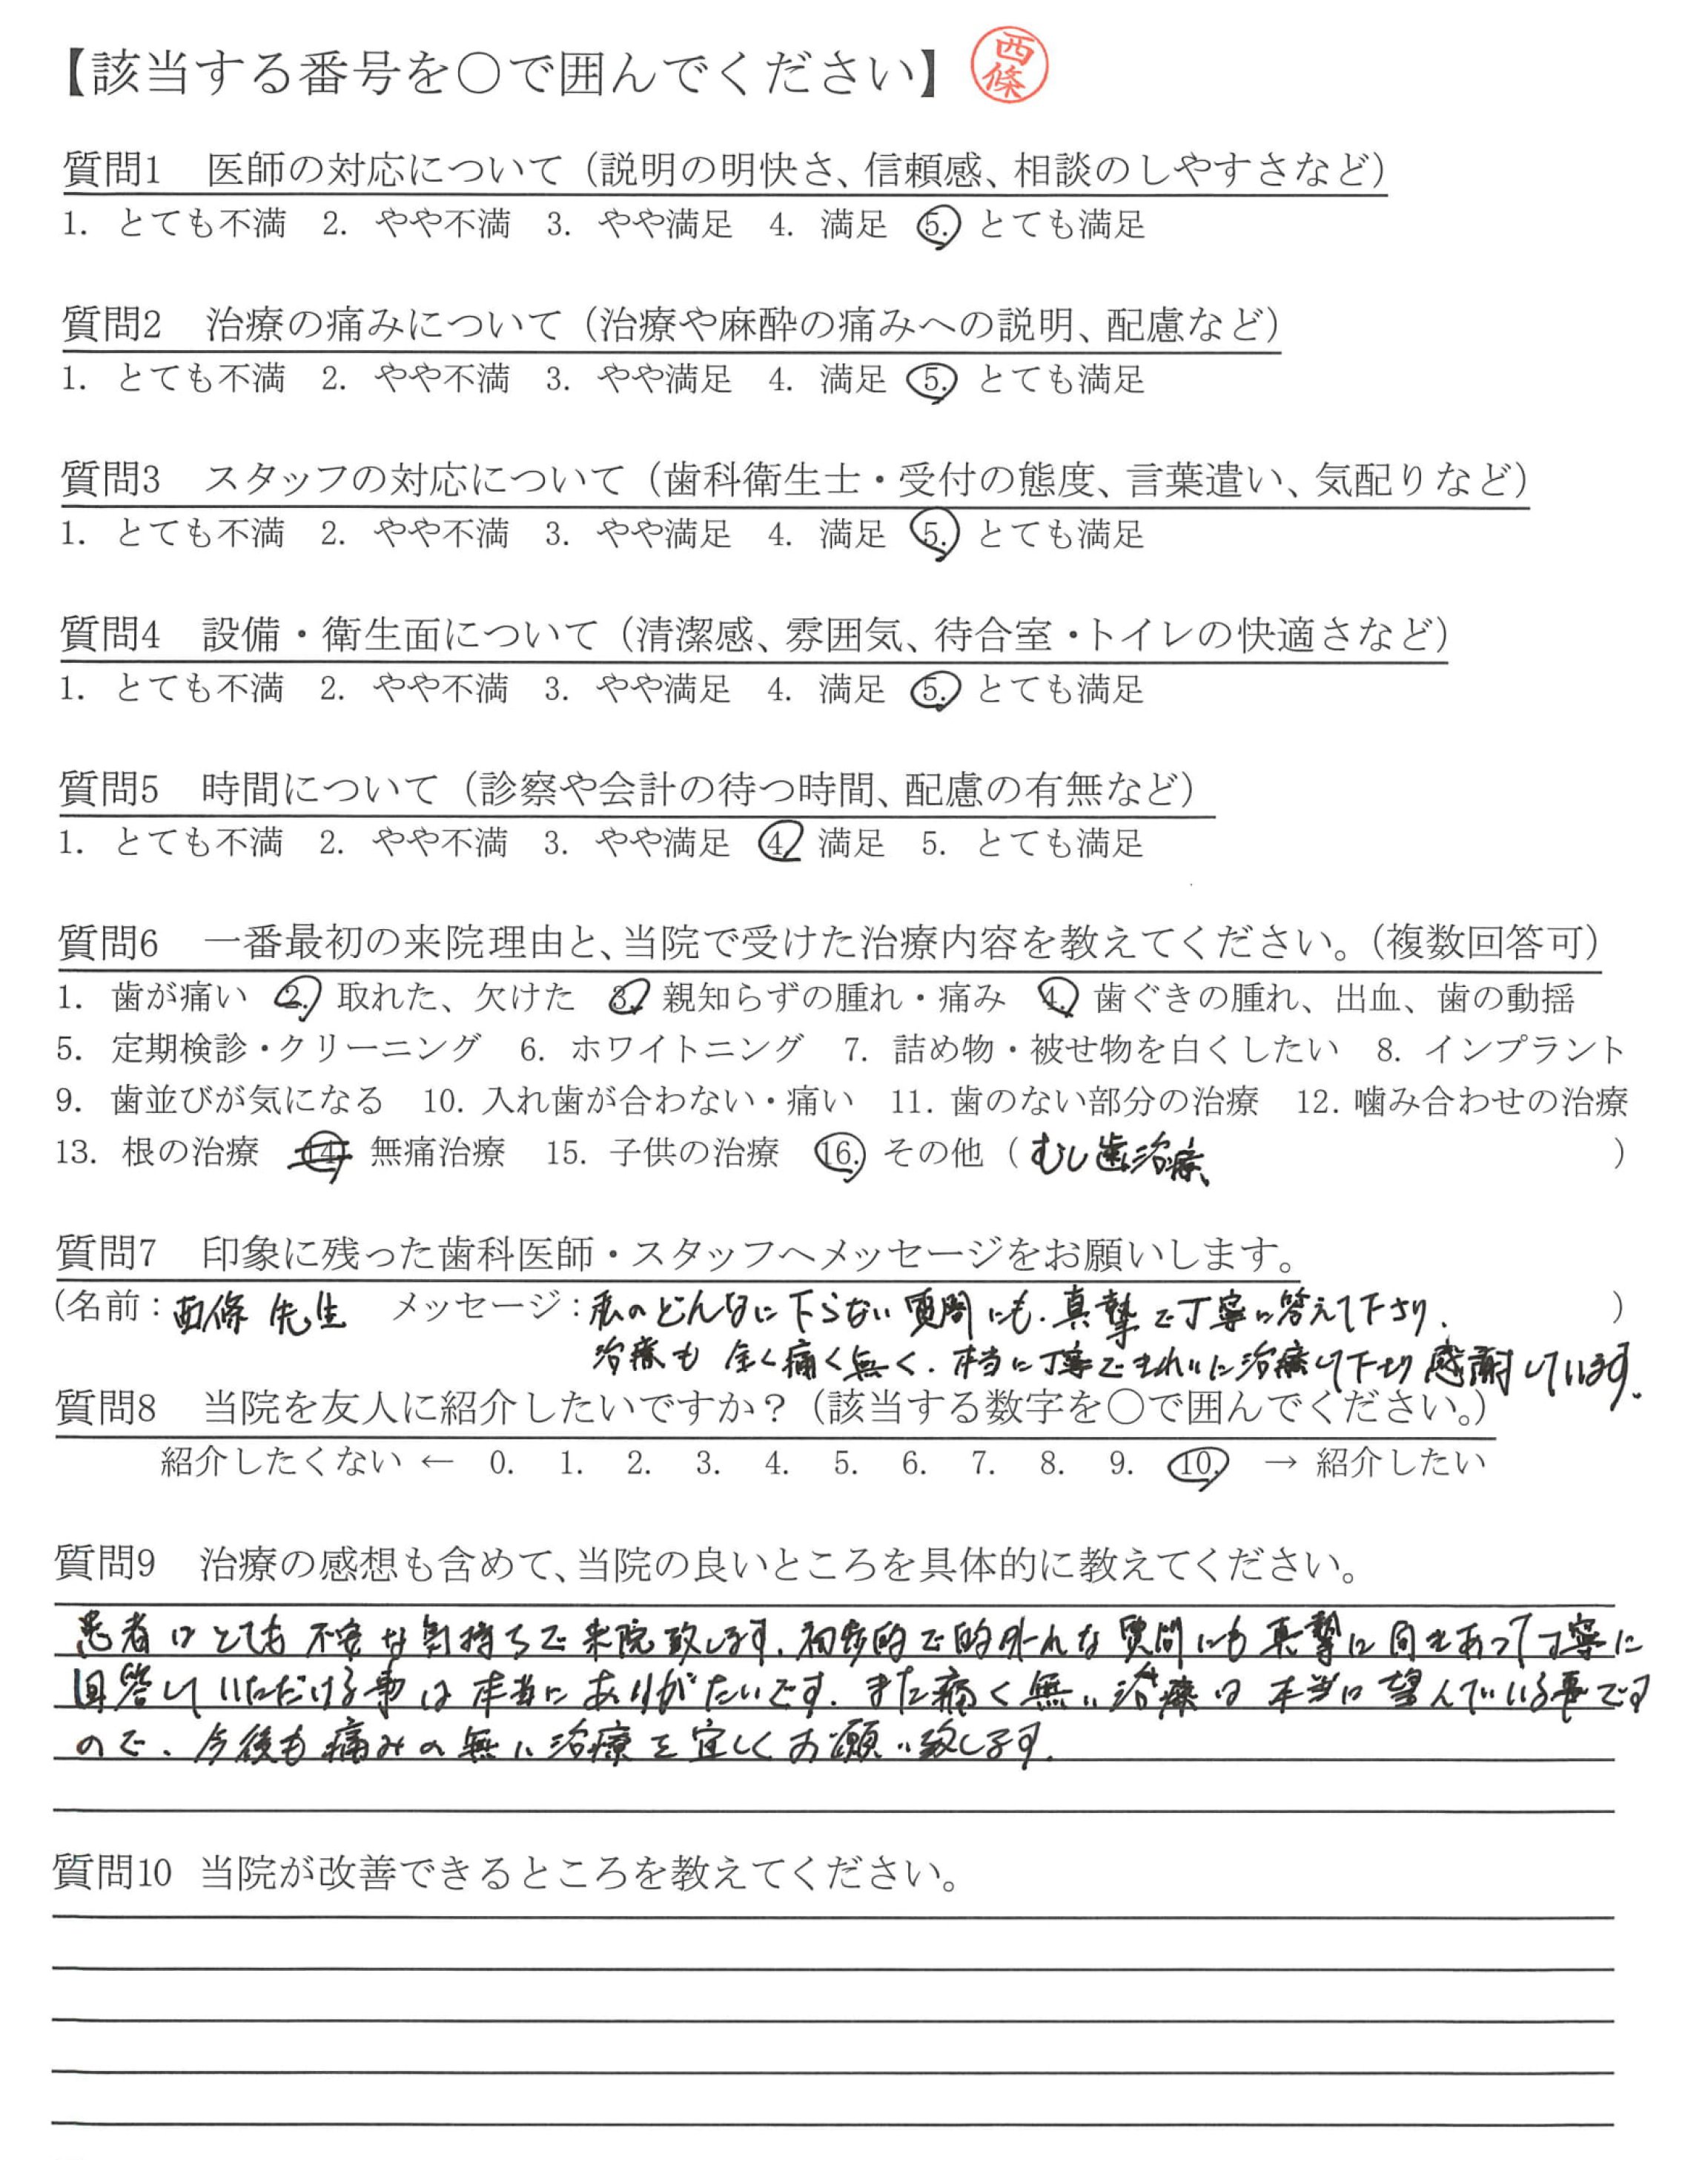 【該当する番号を○で囲んでください】 西條
質問1 医師の対応について（説明の明快さ、信頼感、相談のしやすさなど）
1. とても不満 2. やや不満 3. やや満足 4. 満足 5. とても満足
質問2 治療の痛みについて（治療や麻酔の痛みへの説明、配慮など）
1. とても不満 2. やや不満 3. やや満足 4. 満足 5. とても満足
質問3 スタッフの対応について（歯科衛生士・受付の態度、言葉遣い、気配りなど）
1. とても不満 2. やや不満 3. やや満足 4. 満足 5. とても満足
質問4 設備・衛生面について（清潔感、雰囲気、待合室・トイレの快適さなど）
1. とても不満 2. やや不満 3. やや満足 4. 満足 5. とても満足
質問5 時間について（診察や会計の待つ時間、配慮の有無など）
1. とても不満 2. やや不満 3. やや満足 4. 満足 5. とても満足
質問6 一番最初の来院理由と、当院で受けた治療内容を教えてください。（複数回答可）
1. 歯が痛い 2. 取れた、欠けた 3. 親知らずの腫れ・痛み 4. 歯ぐきの腫れ、出血、歯の動揺
5. 定期検診・クリーニング 6. ホワイトニング 7. 詰め物・被せ物を白くしたい 8. インプラント
9. 歯並びが気になる 10. 入れ歯が合わない・痛い 11. 歯のない部分の治療 12. 噛み合わせの治療
13. 根の治療 14. 無痛治療 15. 子供の治療 16. その他（むし歯治療）
質問7 印象に残った歯科医師・スタッフへメッセージをお願いします。
（名前：西條 先生 メッセージ：私のどんなに下らない質問にも、真摯で丁寧に答えて下さり、）
治療も全く痛く無く、本当に丁寧できれいに治療して下さり感謝しています。
質問8 当院を友人に紹介したいですか？（該当する数字を○で囲んでください。）
紹介したくない ← 0. 1. 2. 3. 4. 5. 6. 7. 8. 9. 10. → 紹介したい
質問9 治療の感想も含めて、当院の良いところを具体的に教えてください。
患者はとても不安な気持ちで来院致します。初歩的で的外れな質問にも真摯に向きあって丁寧に
回答していただける事は本当にありがたいです。また痛く無い治療は本当に望んでいる事です
ので、今後も痛みの無い治療を宜しくお願い致します。
質問10 当院が改善できるところを教えてください。